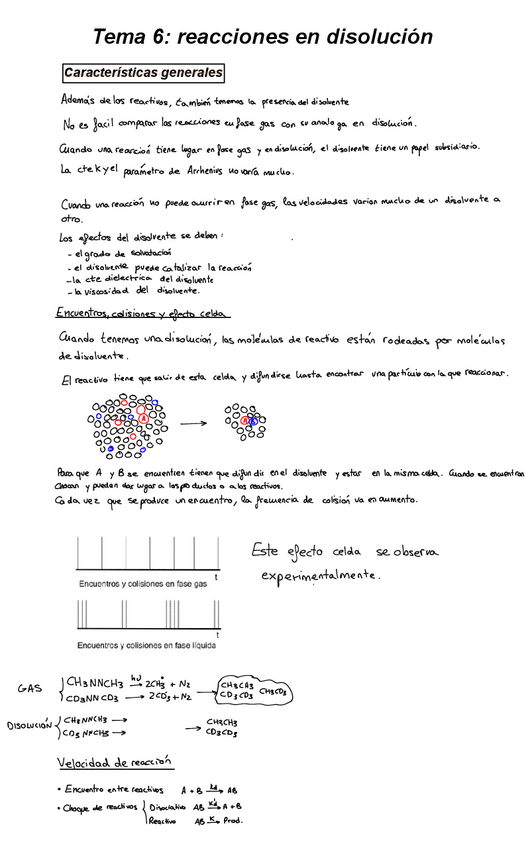 Tema 6: reacciones en disolución
Características generales
Además de los reactivos, también tenemos la presencia del disolvente
No es facil comparar las reacciones en fase gas con su analoga en disolución.
Cuando una reacción tiene lugar en fase gas y en disolución, el disolvente tiene un papel subsidiario.
La cte k y el parámetro de Arrhenius no varía mucho.
Cuando una reacción no puede ocurrir en fase gas, las velocidades varian mucho de un disolvente a
otro.
Los efectos del disolvente se deben:
- el grado de solvatación
- el disolvente puede catalizar la reacción
- la cte dielectrica del disolvente
- la viscosidad del disolvente.
Encuentros, colisiones y efecto celda
Cuando tenemos una disolución, las moléculas de reactivo están rodeadas por moléculas
de disolvente.
El reactivo tiene que salir de esta celda y difundirse hasta encontrar una partícula con la que reaccionar.
A
A B
Para que A y B se encuentren tienen que difundir en el disolvente y estar en la misma celda. Cuando se encuentran
chocan y pueden dar lugar a los productos o a los reactivos.
Cada vez que se produce un encuentro, la frecuencia de colisión va en aumento.
t
Encuentros y colisiones en fase gas
t
Encuentros y colisiones en fase líquida
Este efecto celda se observa
experimentalmente.
GAS { CH3NNCH3 hν→ 2CH3• + N2
CD3NNCD3 → 2CD3• + N2 → CH3CH3 CD3CD3 CH3CD3
DISOLUCIÓN { CH3NNCH3 → → CH3CH3
CD3NNCH3 → CD3CD3
Velocidad de reacción
• Encuentro entre reactivos A + B kd→ AB
• Choque de reactivos { Disociativo AB kd'→ A + B
Reactivo AB k→ Prod.